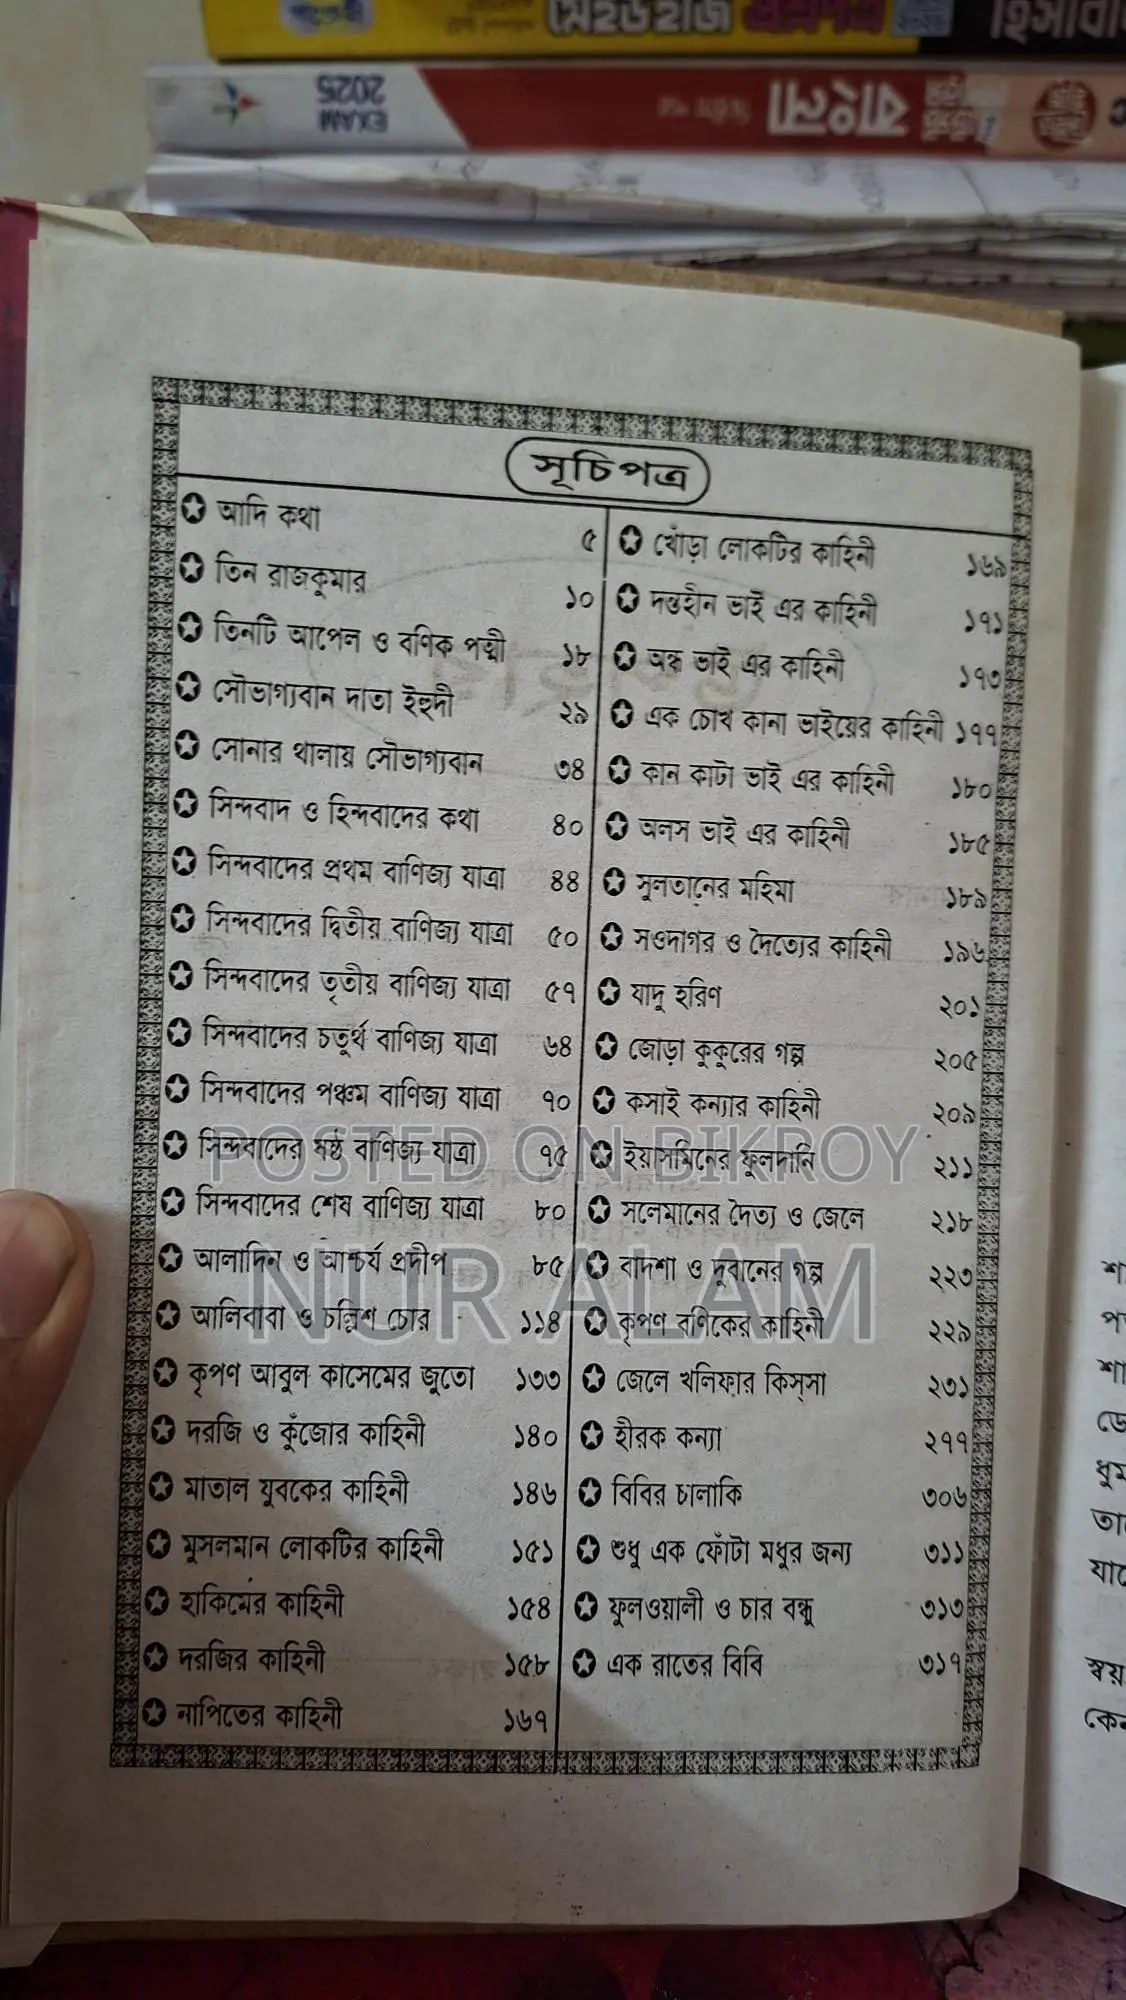 EXAM
2025
বাংলা
সূচিপত্র
আদি কথা ৫
তিন রাজকুমার ১০
তিনটি আপেল ও বণিক পত্মী ১৮
সৌভাগ্যবান দাতা ইহুদী ২৯
সোনার থালায় সৌভাগ্যবান ৩৪
সিন্দবাদ ও হিন্দবাদের কথা ৪০
সিন্দবাদের প্রথম বাণিজ্য যাত্রা ৪৪
সিন্দবাদের দ্বিতীয় বাণিজ্য যাত্রা ৫০
সিন্দবাদের তৃতীয় বাণিজ্য যাত্রা ৫৭
সিন্দবাদের চতুর্থ বাণিজ্য যাত্রা ৬৪
সিন্দবাদের পঞ্চম বাণিজ্য যাত্রা ৭০
সিন্দবাদের ষষ্ঠ বাণিজ্য যাত্রা ৭৫
সিন্দবাদের শেষ বাণিজ্য যাত্রা ৮০
আলাদিন ও আশ্চর্য প্রদীপ ৮৫
আলিবাবা ও চল্লিশ চোর ১১৪
কৃপণ আবুল কাসেমের জুতো ১৩৩
দরজি ও কুঁজোর কাহিনী ১৪০
মাতাল যুবকের কাহিনী ১৪৬
মুসলমান লোকটির কাহিনী ১৫১
হাকিমের কাহিনী ১৫৪
দরজির কাহিনী ১৫৮
নাপিতের কাহিনী ১৬৭
খোঁড়া লোকটির কাহিনী ১৬৯
দন্তহীন ভাই এর কাহিনী ১৭১
অন্ধ ভাই এর কাহিনী ১৭৩
এক চোখ কানা ভাইয়ের কাহিনী ১৭৭
কান কাটা ভাই এর কাহিনী ১৮০
অলস ভাই এর কাহিনী ১৮৫
সুলতানের মহিমা ১৮৯
সওদাগর ও দৈত্যের কাহিনী ১৯৬
যাদু হরিণ ২০১
জোড়া কুকুরের গল্প ২০৫
কসাই কন্যার কাহিনী ২০৯
ইয়াসমিনের ফুলদানি ২১১
সলেমানের দৈত্য ও জেলে ২১৮
বাদশা ও দুবানের গল্প ২২৩
কৃপণ বণিকের কাহিনী ২২৯
জেলে খলিফার কিস্সা ২৩১
হীরক কন্যা ২৭৭
বিবির চালাকি ৩০৬
শুধু এক ফোঁটা মধুর জন্য ৩১১
ফুলওয়ালী ও চার বন্ধু ৩১৩
এক রাতের বিবি ৩১৭
POSTED ON BIKROY
NUR ALAM